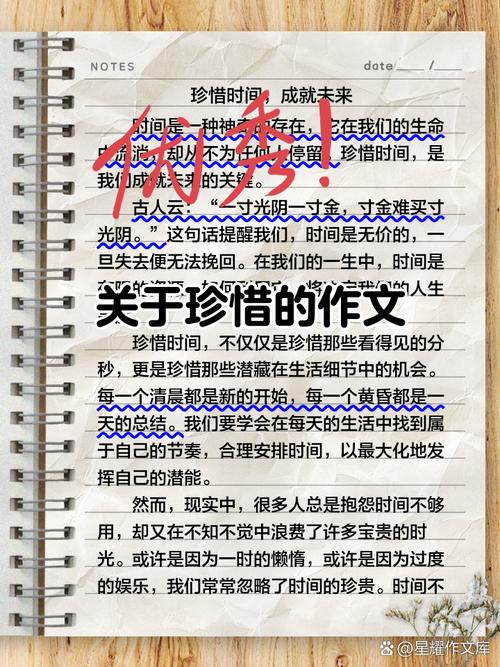 NOTES
date ___ / ___
珍惜时间，成就未来
时间是一种神奇的存在，它在我们的生命
中流淌，却从不为任何人停留。珍惜时间，是
我们成就未来的关键。
优秀！
古人云：“一寸光阴一寸金，寸金难买寸
光阴。”这句话提醒我们，时间是无价的，一
旦失去便无法挽回。在我们的一生中，时间是
的人生
关于珍惜的作文
珍惜时间，不仅仅是珍惜那些看得见的分
秒，更是珍惜那些潜藏在生活细节中的机会。
每一个清晨都是新的开始，每一个黄昏都是一
天的总结。我们要学会在每天的生活中找到属
于自己的节奏，合理安排时间，以最大化地发
挥自己的潜能。
然而，现实中，很多人总是抱怨时间不够
用，却又在不知不觉中浪费了许多宝贵的时
光。或许是因为一时的懒惰，或许是因为过度
的娱乐，我们常常忽略了时间的珍贵。时间不
星耀作文库